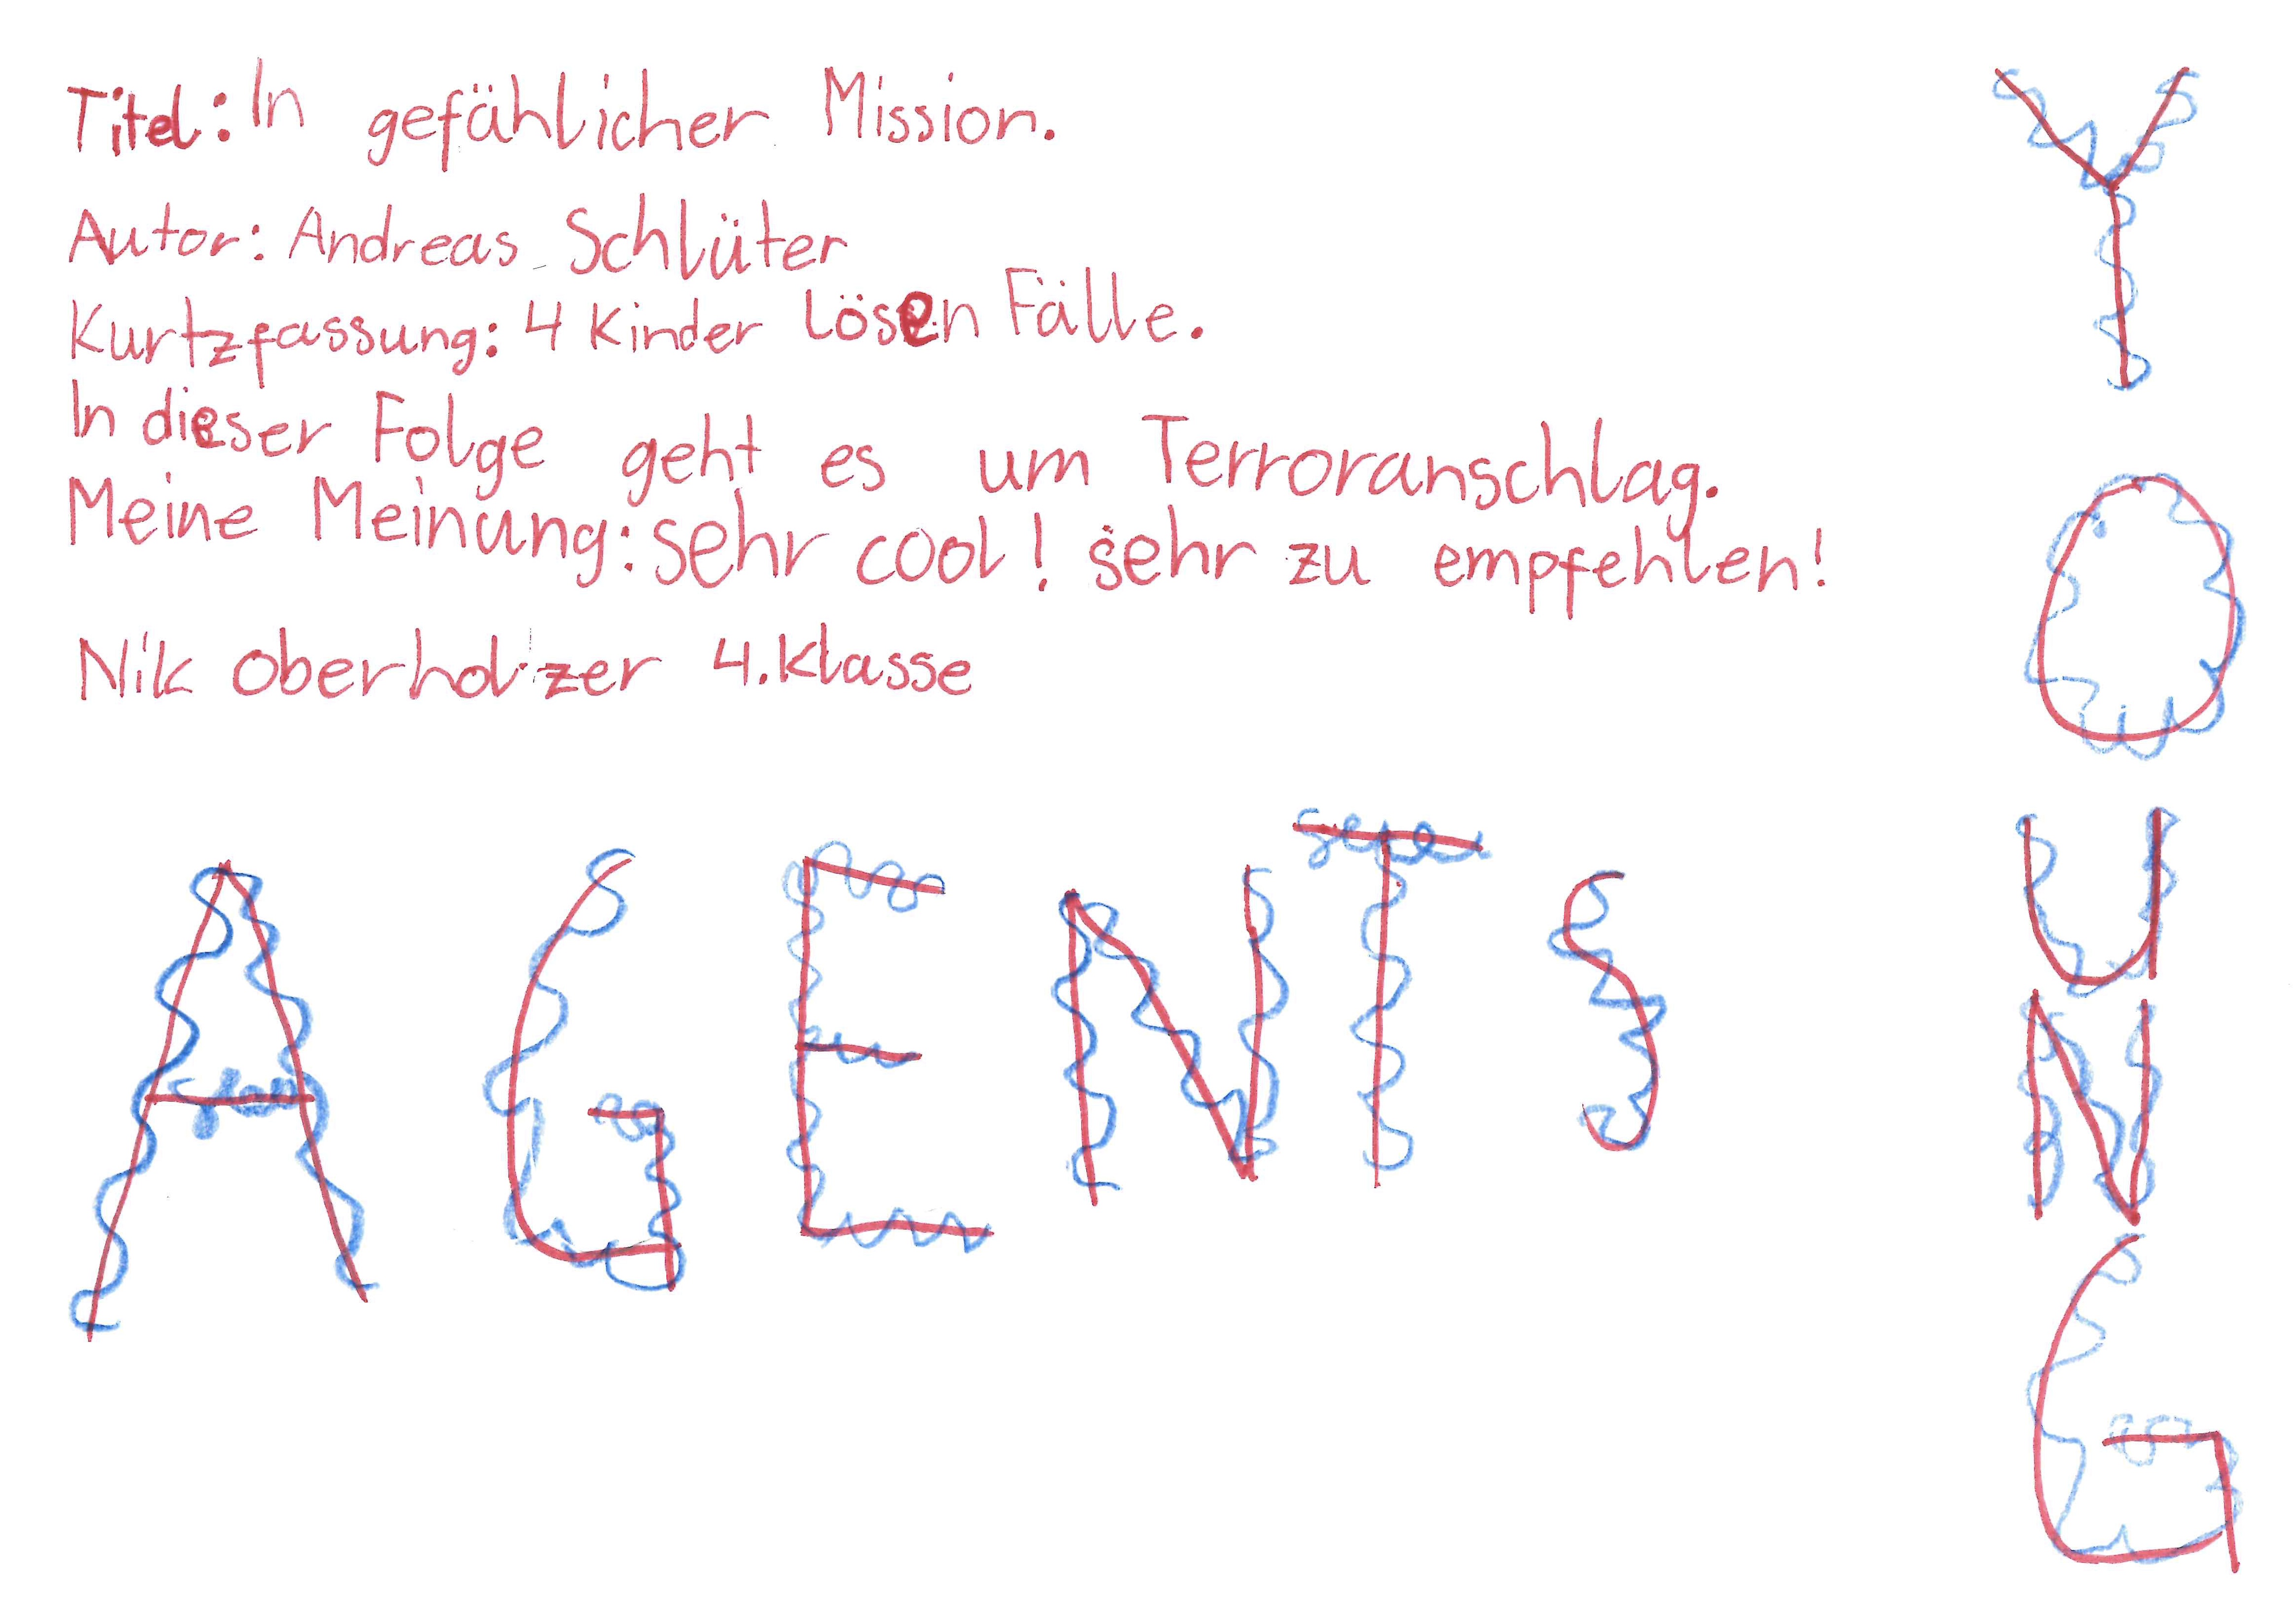 Titel: In gefählicher Mission.
Autor: Andreas Schlüter
Kurtzfassung: 4 Kinder lösen Fälle.
In dieser Folge geht es um Terroranschlag.
Meine Meinung: sehr cool! sehr zu empfehlen!
Nik Oberholzer 4. Klasse
YOUNG
AGENTS